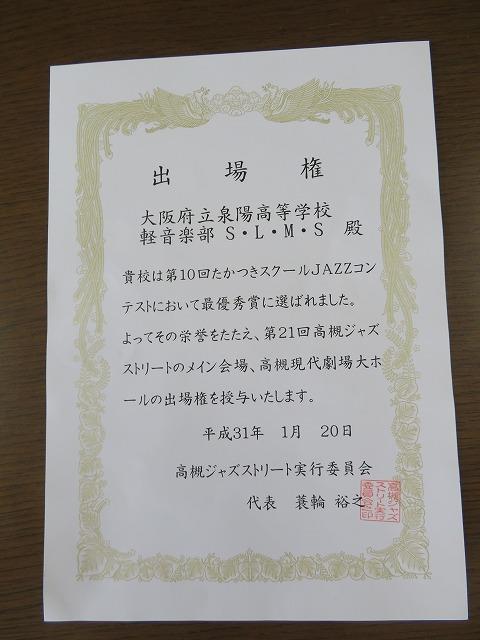 出場権
大阪府立泉陽高等学校
軽音楽部 S・L・M・S 殿
貴校は第10回たかつきスクールJAZZコン
テストにおいて最優秀賞に選ばれました。
よってその栄誉をたたえ、第21回高槻ジャズ
ストリートのメイン会場、高槻現代劇場大ホ
ールの出場権を授与いたします。
平成31年 1月 20日
高槻ジャズストリート実行委員会
代表 蓑輪 裕之
高槻ジャズ
ストリート実行
委員会之印